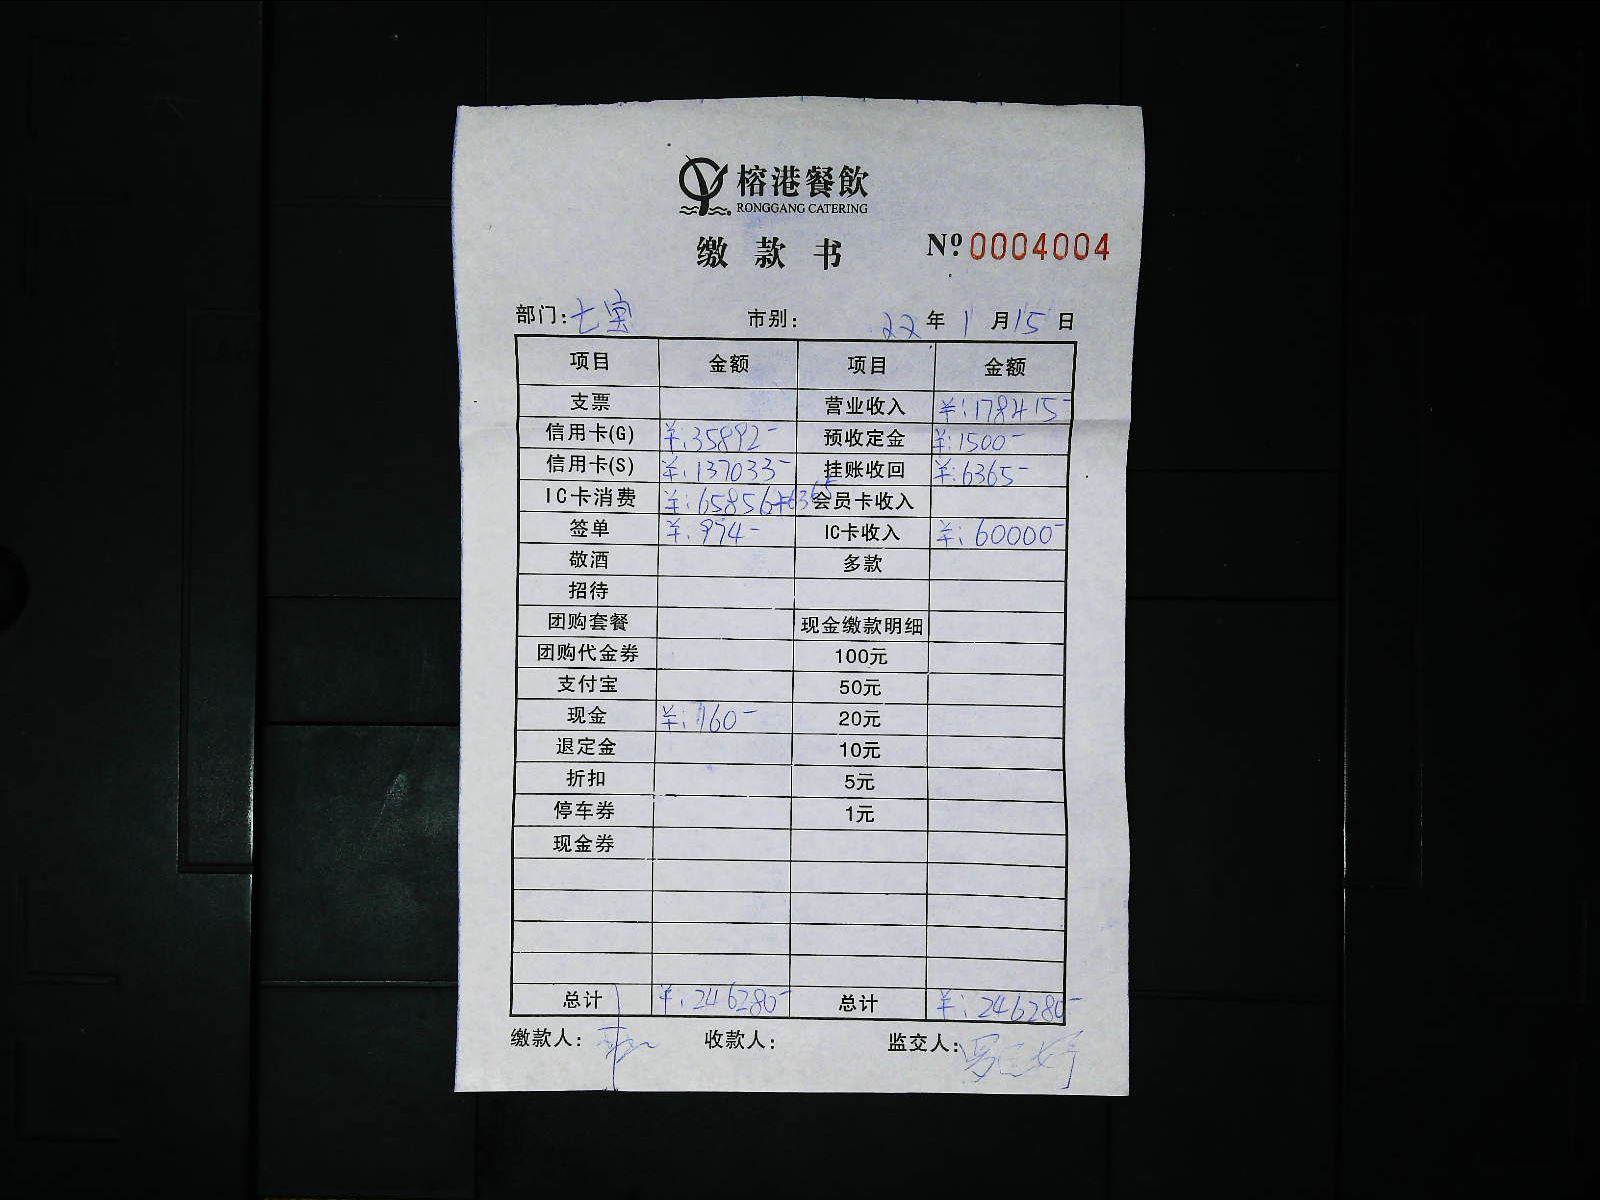 榕港餐飲
RONGGANG CATERING
缴款书 Nº.0004004
部门:七宝 市别: 22年1月15日
项目 金额 项目 金额
支票 营业收入 ¥:178415-
信用卡(G) ¥:35892- 预收定金 ¥:1500-
信用卡(S) ¥:137033- 挂账收回 ¥:6365-
IC卡消费 ¥:65856+6365 会员卡收入
签单 ¥:974- IC卡收入 ¥:60000-
敬酒 多款
招待
团购套餐 现金缴款明细
团购代金券 100元
支付宝 50元
现金 ¥:160- 20元
退定金 10元
折扣 5元
停车券 1元
现金券
总计 ¥:246280- 总计 ¥:246280-
缴款人: 收款人: 监交人: